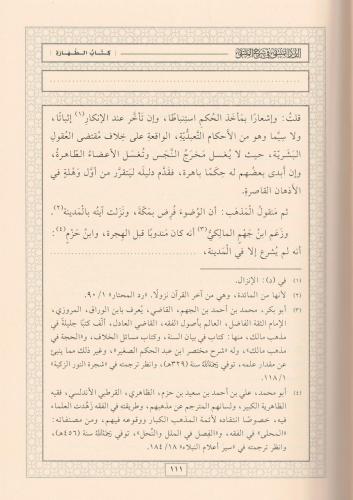 كتاب الطهارة
قلتُ: وإشعارًا بمأخذ الحُكمِ استنباطًا، وإن تأخَّر عند الإنكارِ(١) إثباتًا،
ولا سيَّما وهو من الأحكامِ التَّعبُّديَّة، الواقعةِ على خلاف مُقتضى العُقولِ
البَشَريّة، حيث لا يُغسل مَخرَجُ النَّجَس وتُغسَل الأعضاءُ الظاهرةُ،
وإن أبدى بعضُهم له حِكَمًا باهرة، فقدَّم دليلَه ليتقرَّر من أوَّل وَهْلةٍ في
الأذهان القاصرة.
ثم مَنقولُ المذهَب: أن الوُضوءَ فُرِض بمَكّة، ونزَلت آيتُه بالمَدينة(٢).
وزَعَم ابنُ جَهْمٍ المالكيُّ(٣) أنه كان مَندوبًا قبل الهِجرة، وابنُ حَزْمٍ(٤):
أنه لم يُشرع إلا في الْمَدينة،
(١) في (د): الإنزال.
(٢) لأنها من المائدة، وهي من آخر القرآن نزولًا. «رد المحتار» ١/ ٩٠.
(٣) أبو بكر، محمد بن أحمد بن الجهم، القاضي، يُعرف بابن الوراق، المروزي،
الإمام الثقة الفاضل، العالم بأصول الفقه، القاضي العادل، ألَّف كتبًا جليلةً في
مذهب مالك، منها: كتاب في بيان السنة، وكتاب مسائل الخلاف، و«الحجة في
مذهب مالك»، وله «شرح مختصر ابن عبد الحكم الصغير»، وغير ذلك مما ينبئ
عن مقدار علمه، توفي رَحِمَهُ اللهُ سنة (٣٢٩هـ)، وانظر ترجمته في «شجرة النور الزكية»
١/ ١١٨.
(٤) أبو محمد، علي بن أحمد بن سعيد بن حزم، الظاهري، القرطبي الأندلسي، فقيه
الظاهرية الكبير، ولسانهم المترجم عن مذهبهم، وطريقته في الفقه زهَّدت العلماء
فيه، خصوصًا انتقاده لأئمة المذهب الكبار ووقوعه فيهم، ومن مصنفاته:
«المحلى» في الفقه، و«الفِصل في الملل والنِّحل»، توفي رَحِمَهُ اللهُ سنة (٤٥٦هـ)،
وانظر ترجمته في «سير أعلام النبلاء» ١٨/ ١٨٤.
١١١